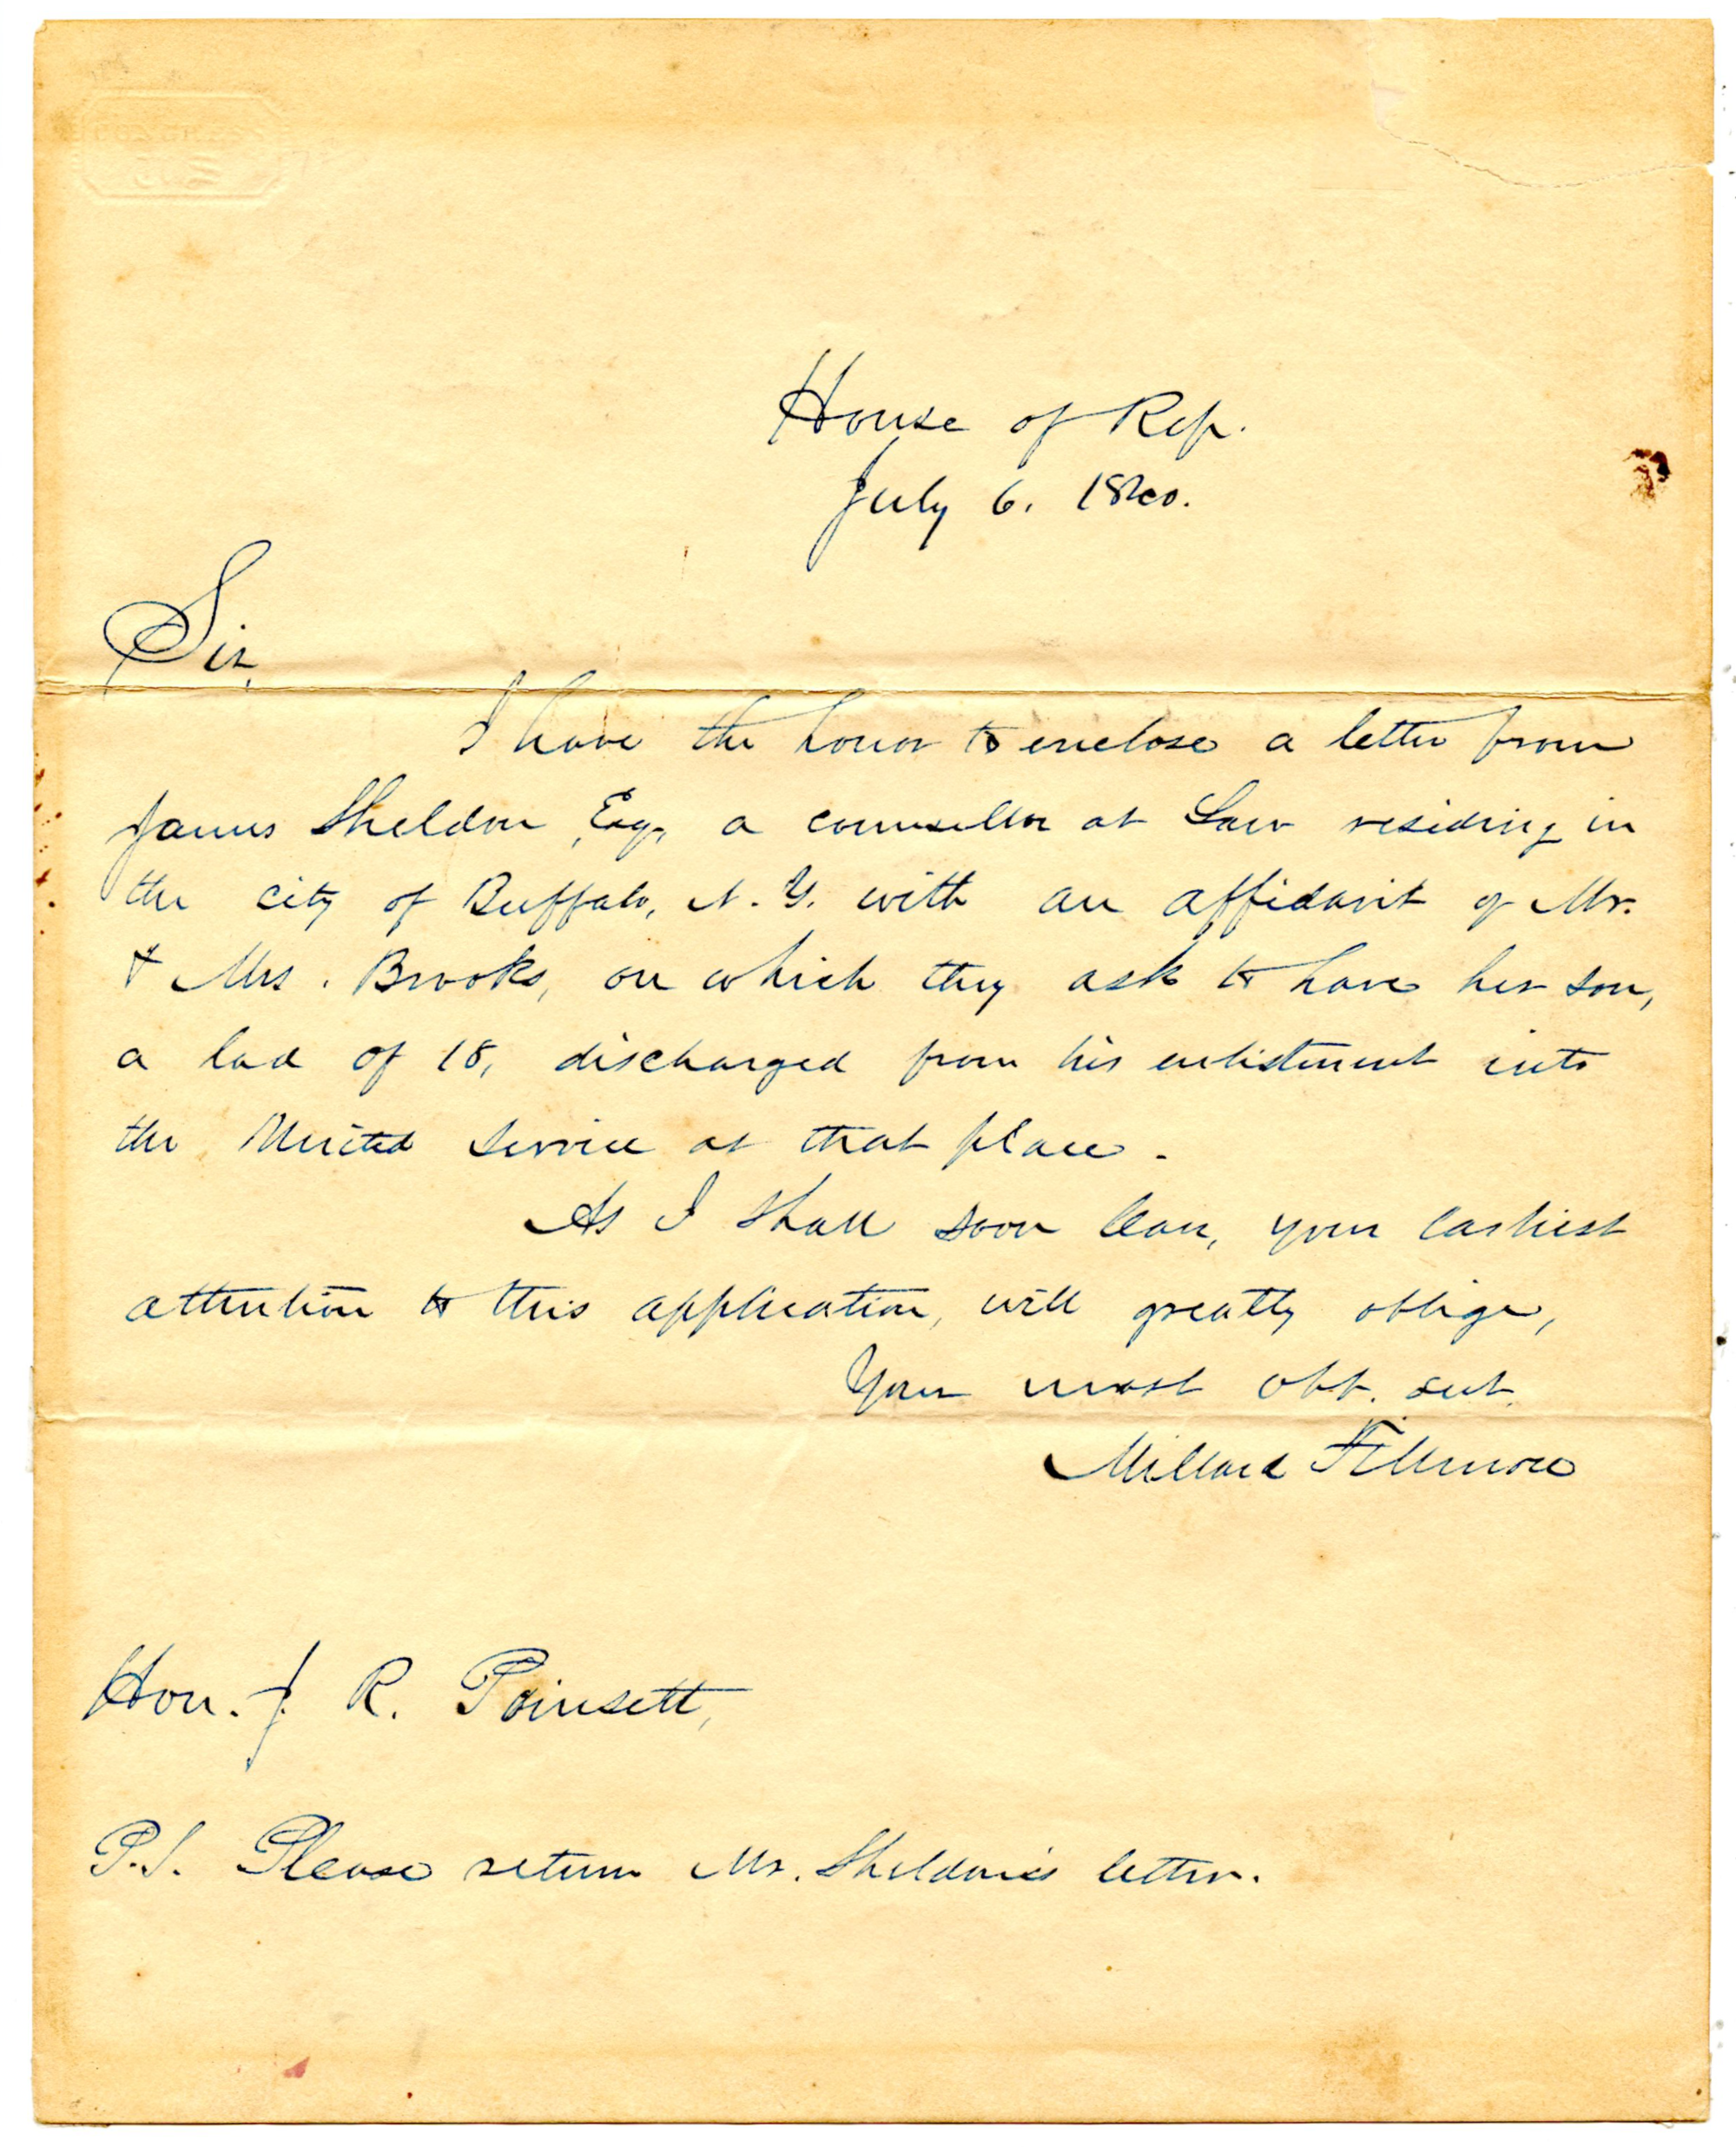 CONGRESS
House of Rep.
July 6. 1840.
Sir,
I have the honor to enclose a letter from
James Sheldon Esq. a counsellor at Law residing in
the city of Buffalo, N. Y. with an affidavit of Mr.
& Mrs. Brooks, on which they ask to have her son,
a lad of 18, discharged from his enlistment into
the United service at that place.
As I shall soon leave, your earliest
attention to this application, will greatly oblige,
Your most obt. svt.
Millard Fillmore
Hon. J. R. Poinsett,
P.S. Please return Mr. Sheldon's letter.